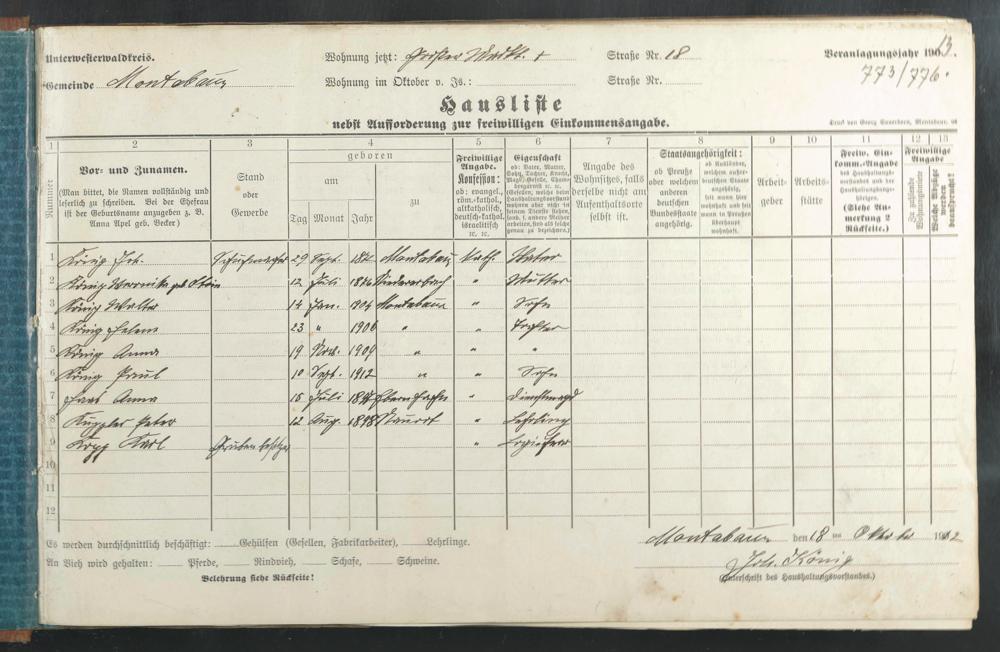 Unterwesterwaldkreis.
Gemeinde Montabaur
Wohnung jetzt: Großer Markt.
Wohnung im Oktober v. Js.:
Straße Nr. 18
Straße Nr.
Veranlagungsjahr 1913.
773/776.
Hausliste
nebst Aufforderung zur freiwilligen Einkommensangabe.
Druck von Georg Sauerborn, Montabaur.
1 2 3 4 5 6 7 8 9 10 11 12 13
Nummer
Vor- und Zunamen.
(Man bittet, die Namen vollständig und
leserlich zu schreiben. Bei der Ehefrau
ist der Geburtsname anzugeben z. B.
Anna Apel geb. Becker)
Stand
oder
Gewerbe
geboren
am
Tag Monat Jahr
zu
Freiwillige
Angabe.
Konfession:
ob: evangel.,
röm.-kathol.,
altkatholisch,
deutsch-kathol.
israelitisch
rc. rc.
Eigenschaft
ob: Vater, Mutter,
Sohn, Tochter, Knecht,
Angabe des
Wohnsitzes, falls
derselbe nicht am
Aufenthaltsorte
selbst ist.
Staatsangehörigkeit:
ob Preuße
oder welchem
anderen
deutschen
Bundesstaate
angehörig.
ob Ausländer,
welchem außer-
deutschen Staate
angehörig,
seit wann hier
wohnhaft und seit
wann in Preußen
überhaupt
wohnhaft.
Arbeit-
geber
Arbeits-
stätte
Freiw. Ein-
komm.-Angabe
des Haushaltungs-
vorstandes und der
Haushaltungsange-
hörigen.
(Siehe An-
merkung 2
Rückseite.)
Freiwillige
Angabe
Zu zahlende
Wohnungsmiete
Welche Abzüge
werden
beansprucht?
1 König Joh. Schuhmacher 29 Sept. Montabaur Kath. Vater
2 König Veronika geb. 12 Juli " Mutter
3 König Walter 14 Jan. 1904 Montabaur " Sohn
4 König Helene 23 " 1906 " " Tochter
5 König Anna 19 Nov. 1909 " " "
6 König Paul 10 Sept. 1912 " " Sohn
7 Haas Anna 15 Juli " Dienstmagd
8 Peter 12 Aug. 1898 Staudt " Lehrling
9 Karl Grubenbesitzer "
10
11
12
Es werden durchschnittlich beschäftigt: Gehülfen (Gesellen, Fabrikarbeiter), Lehrlinge.
An Vieh wird gehalten: Pferde, Rindvieh, Schafe, Schweine.
Belehrung siehe Rückseite!
Montabaur den 18 ten Oktober 1912
Joh. König
(Unterschrift des Haushaltungsvorstandes.)